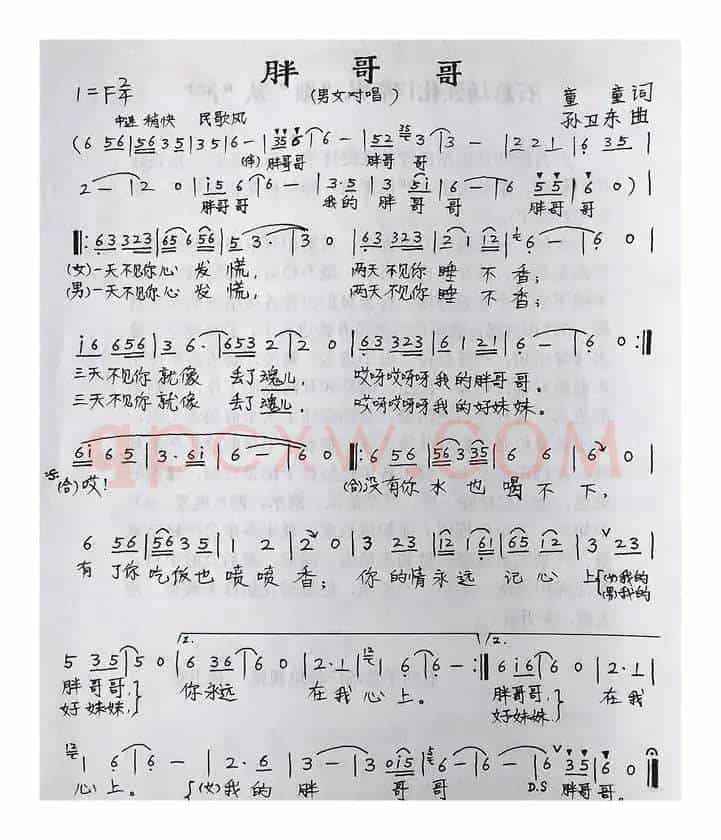 胖 哥 哥
1=F 2/4
(男女对唱)
童 童 词
孙卫东 曲
中速 稍快 民歌风
(6 56|56 35|35|6-|356|6-|52 3|3-|221|6 35|
(伴)胖哥哥 胖哥 哥
2-|2 0|i56|6-|3·5|3 5i|6-|6 55|6 0)|
胖哥哥 我的 胖哥 哥 胖哥 哥
‖:63 3323|65 656|53|3 0|63 3323|21 12|6-|6 0|
(女)一天不见你心 发 慌, 两天不见你睡 不 香;
(男)一天不见你心 发 慌, 两天不见你睡 不 香;
i6 656|3 6·|653 2|2 0|63 3323|61 21|6-|6 0:‖
三天不见你就像 丢了魂儿, 哎呀哎呀呀我的胖哥哥.
三天不见你就像 丢了魂儿, 哎呀哎呀呀我的好妹妹。
6i 65|3·6i|6-|6 0‖:6 56|56 335|6 6|6 0|
qpcxw.com
(合)哎! (合)没有你 水 也 喝 不 下,
6 56|56 35|1 2|2 0|3 23|12 61|65 12|3 23|
有 了你吃饭也 喷喷 香; 你 的情永远 记心 上{(女)我的
(男)我的
5 35|5 0|6 36|6 0|2·1|1 6|6-:‖6i6|6 0|2·1|
胖哥哥,} 你永远 在我 心上。 胖哥哥,} 在我
好妹妹,} 好妹妹,}
1 6|6-|2·6|3-|3 0i5|6-|6-|6 35|6 0‖
心上。 {(女)我的 胖 哥 哥 D.S 胖哥哥.